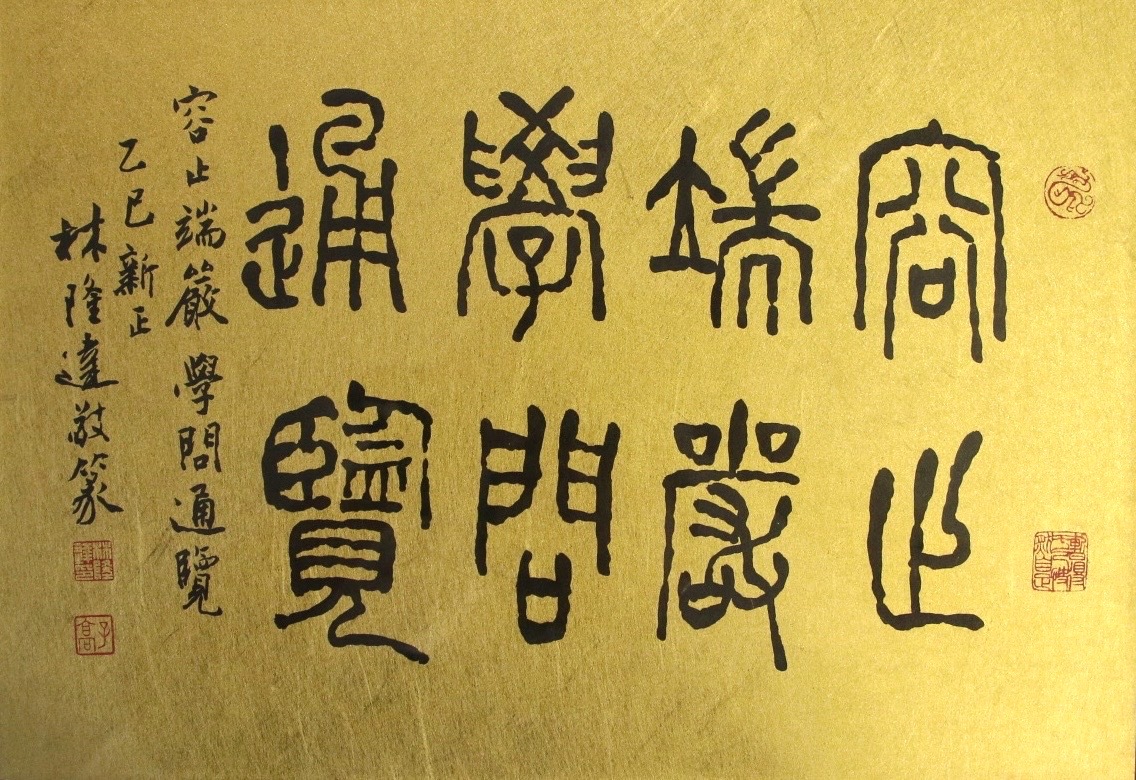 容止
端嚴
學問
通覽
容止端嚴學問通覽
乙巳新正
林隆達敬篆
子高